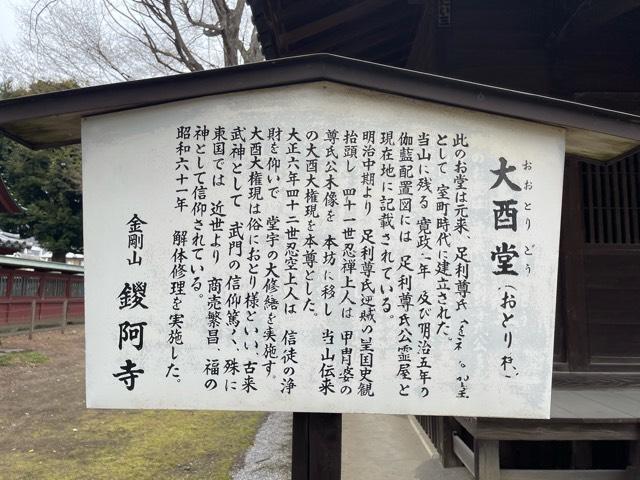 おおとりどう
大酉堂(おとり
此のお堂は元来、足利尊氏
として室町時代に建立された。
当山に残る寛政二年及び明治五年の
伽藍配置図には足利尊氏公霊屋と
現在地に記載されている。
明治中期より足利尊氏逆賊の皇国史観
抬頭し四十一世忍禅上人は甲冑姿の
尊氏公木像を本坊に移し当山伝来
の大酉大権現を本尊とした。
大正六年四十二世忍空上人は信徒の浄
財を仰いで堂宇の大修繕を実施す。
大酉大権現は俗におとり様といい、古来
武神として武門の信仰篤く、殊に
東国では近世より商売繁昌、福の
神として信仰されている。
昭和六十一年解体修理を実施した。
金剛山鑁阿寺